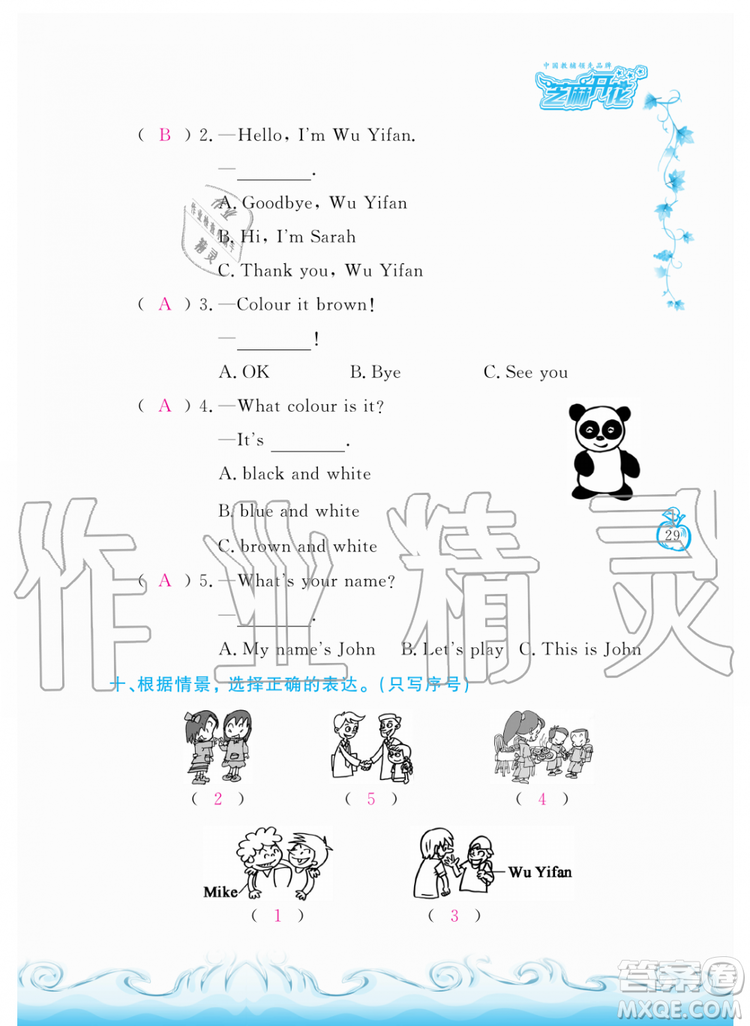 中国教辅领先品牌
芝麻开花
( B ) 2. —Hello, I'm Wu Yifan.
—________.
A. Goodbye, Wu Yifan
B. Hi, I'm Sarah
C. Thank you, Wu Yifan
( A ) 3. —Colour it brown!
—________!
A. OK B. Bye C. See you
( A ) 4. —What colour is it?
—It's ________.
A. black and white
B. blue and white
C. brown and white
29
( A ) 5. —What's your name?
—________.
A. My name's John B. Let's play C. This is John
十、根据情景,选择正确的表达。(只写序号)
( 2 ) ( 5 ) ( 4 )
Mike Wu Yifan
( 1 ) ( 3 )
作业精灵
答案圈
MXQE.COM